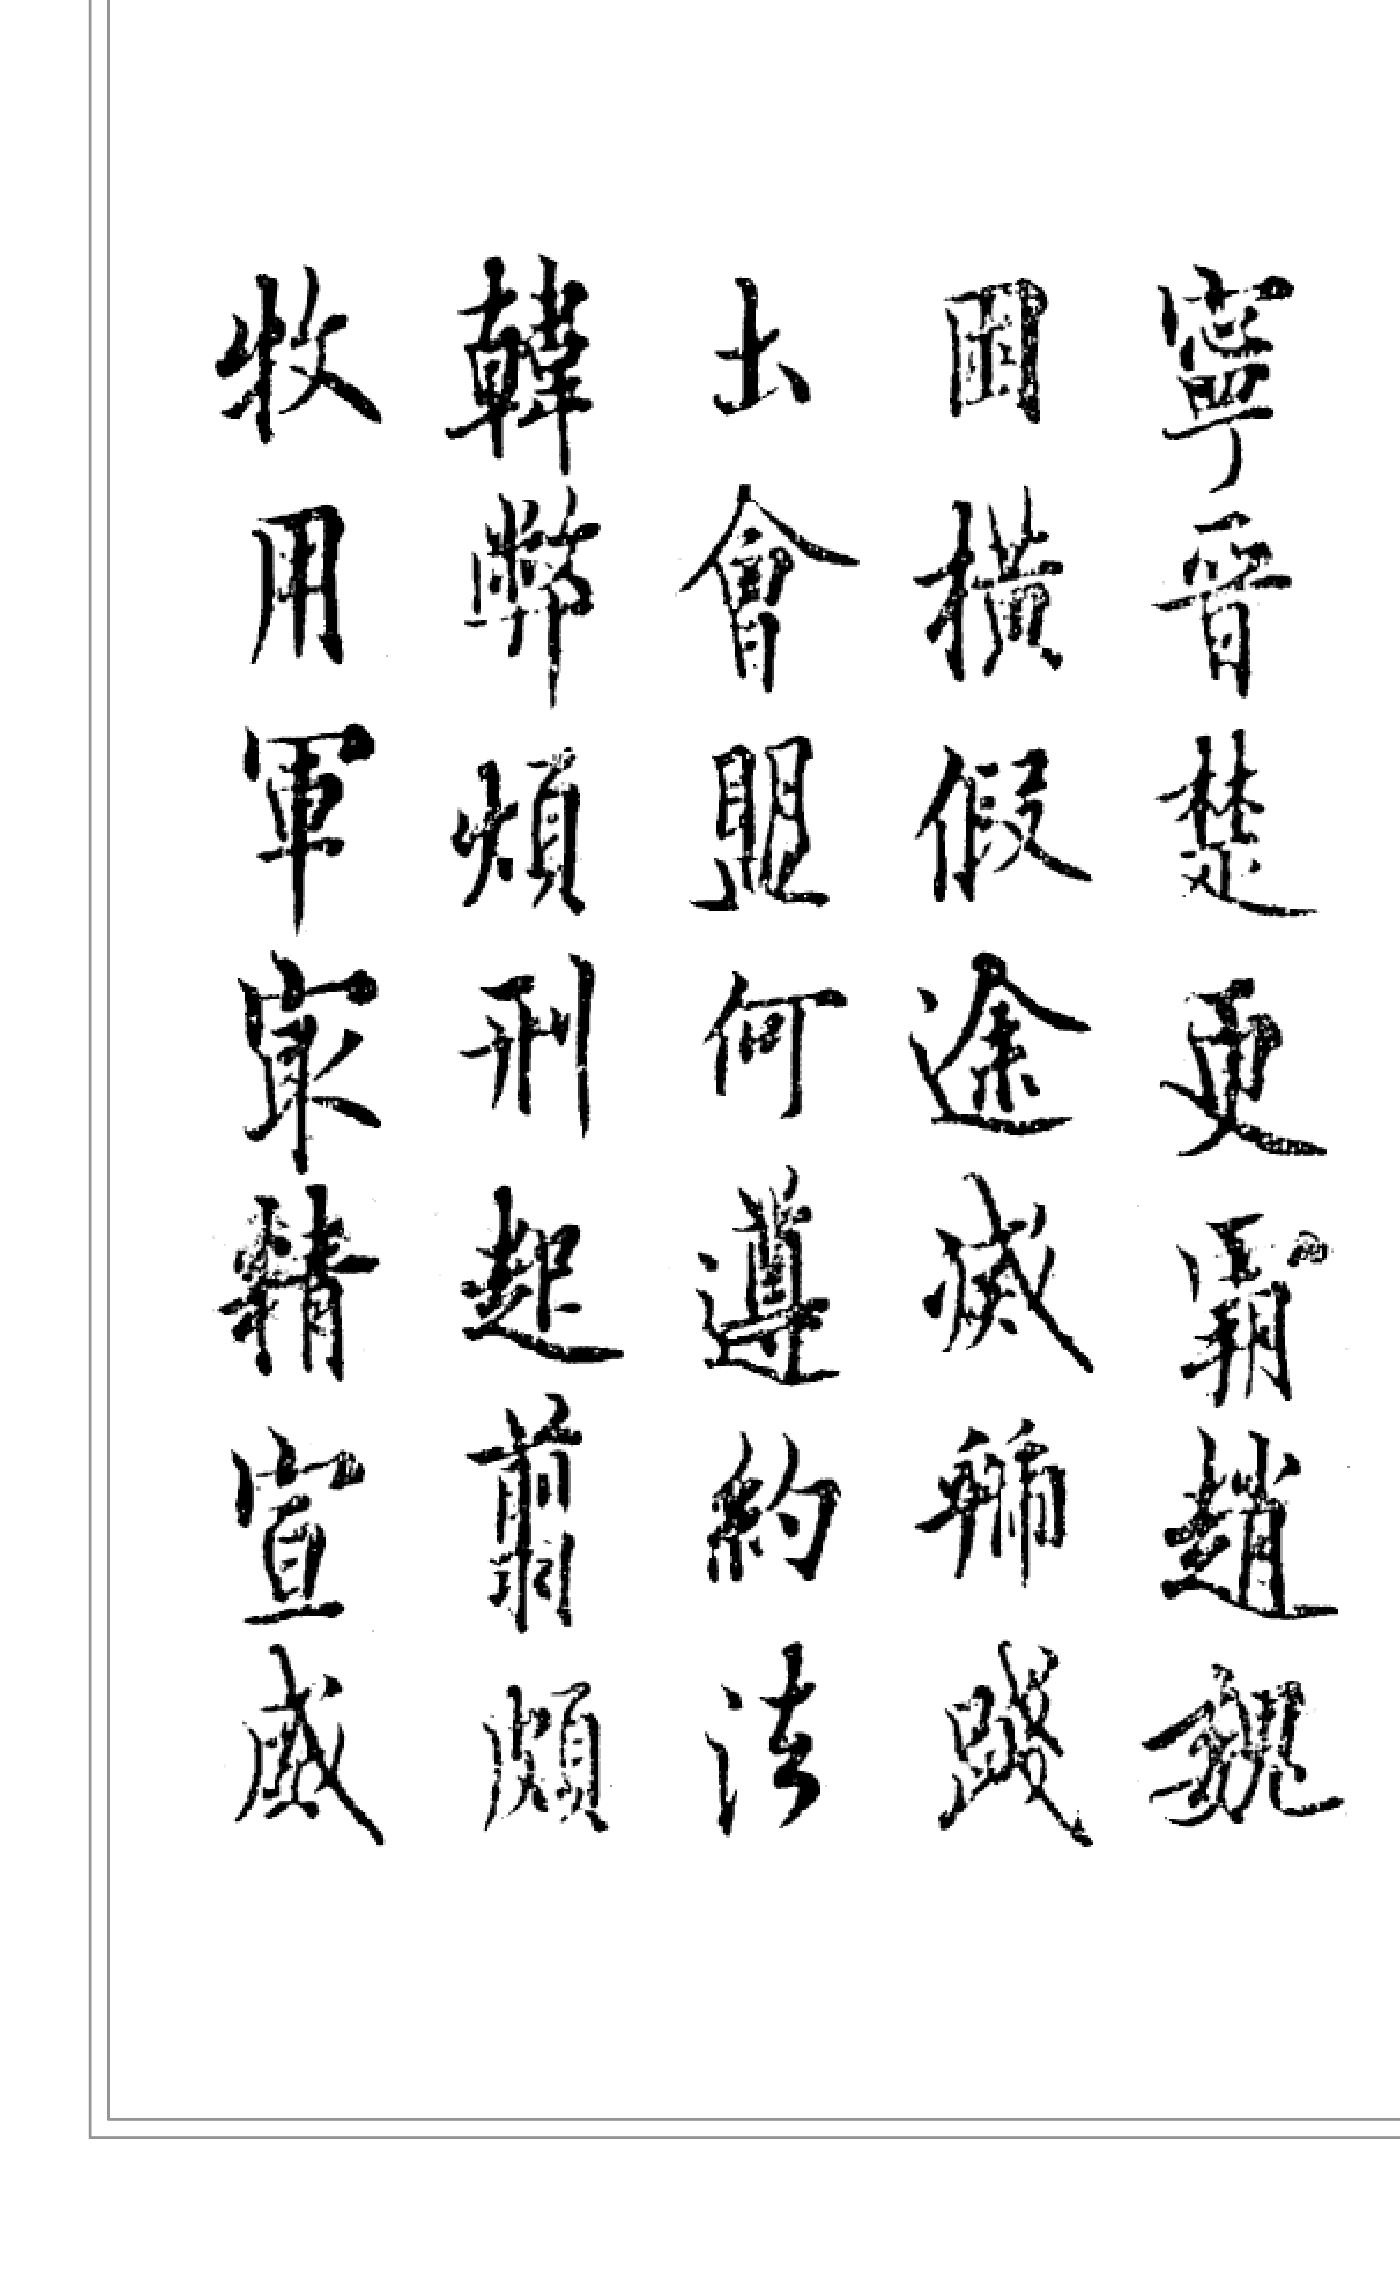 寧晉楚更霸趙魏
困橫假途滅虢踐
土會盟何遵約法
韓弊煩刑起翦頗
牧用軍最精宣威